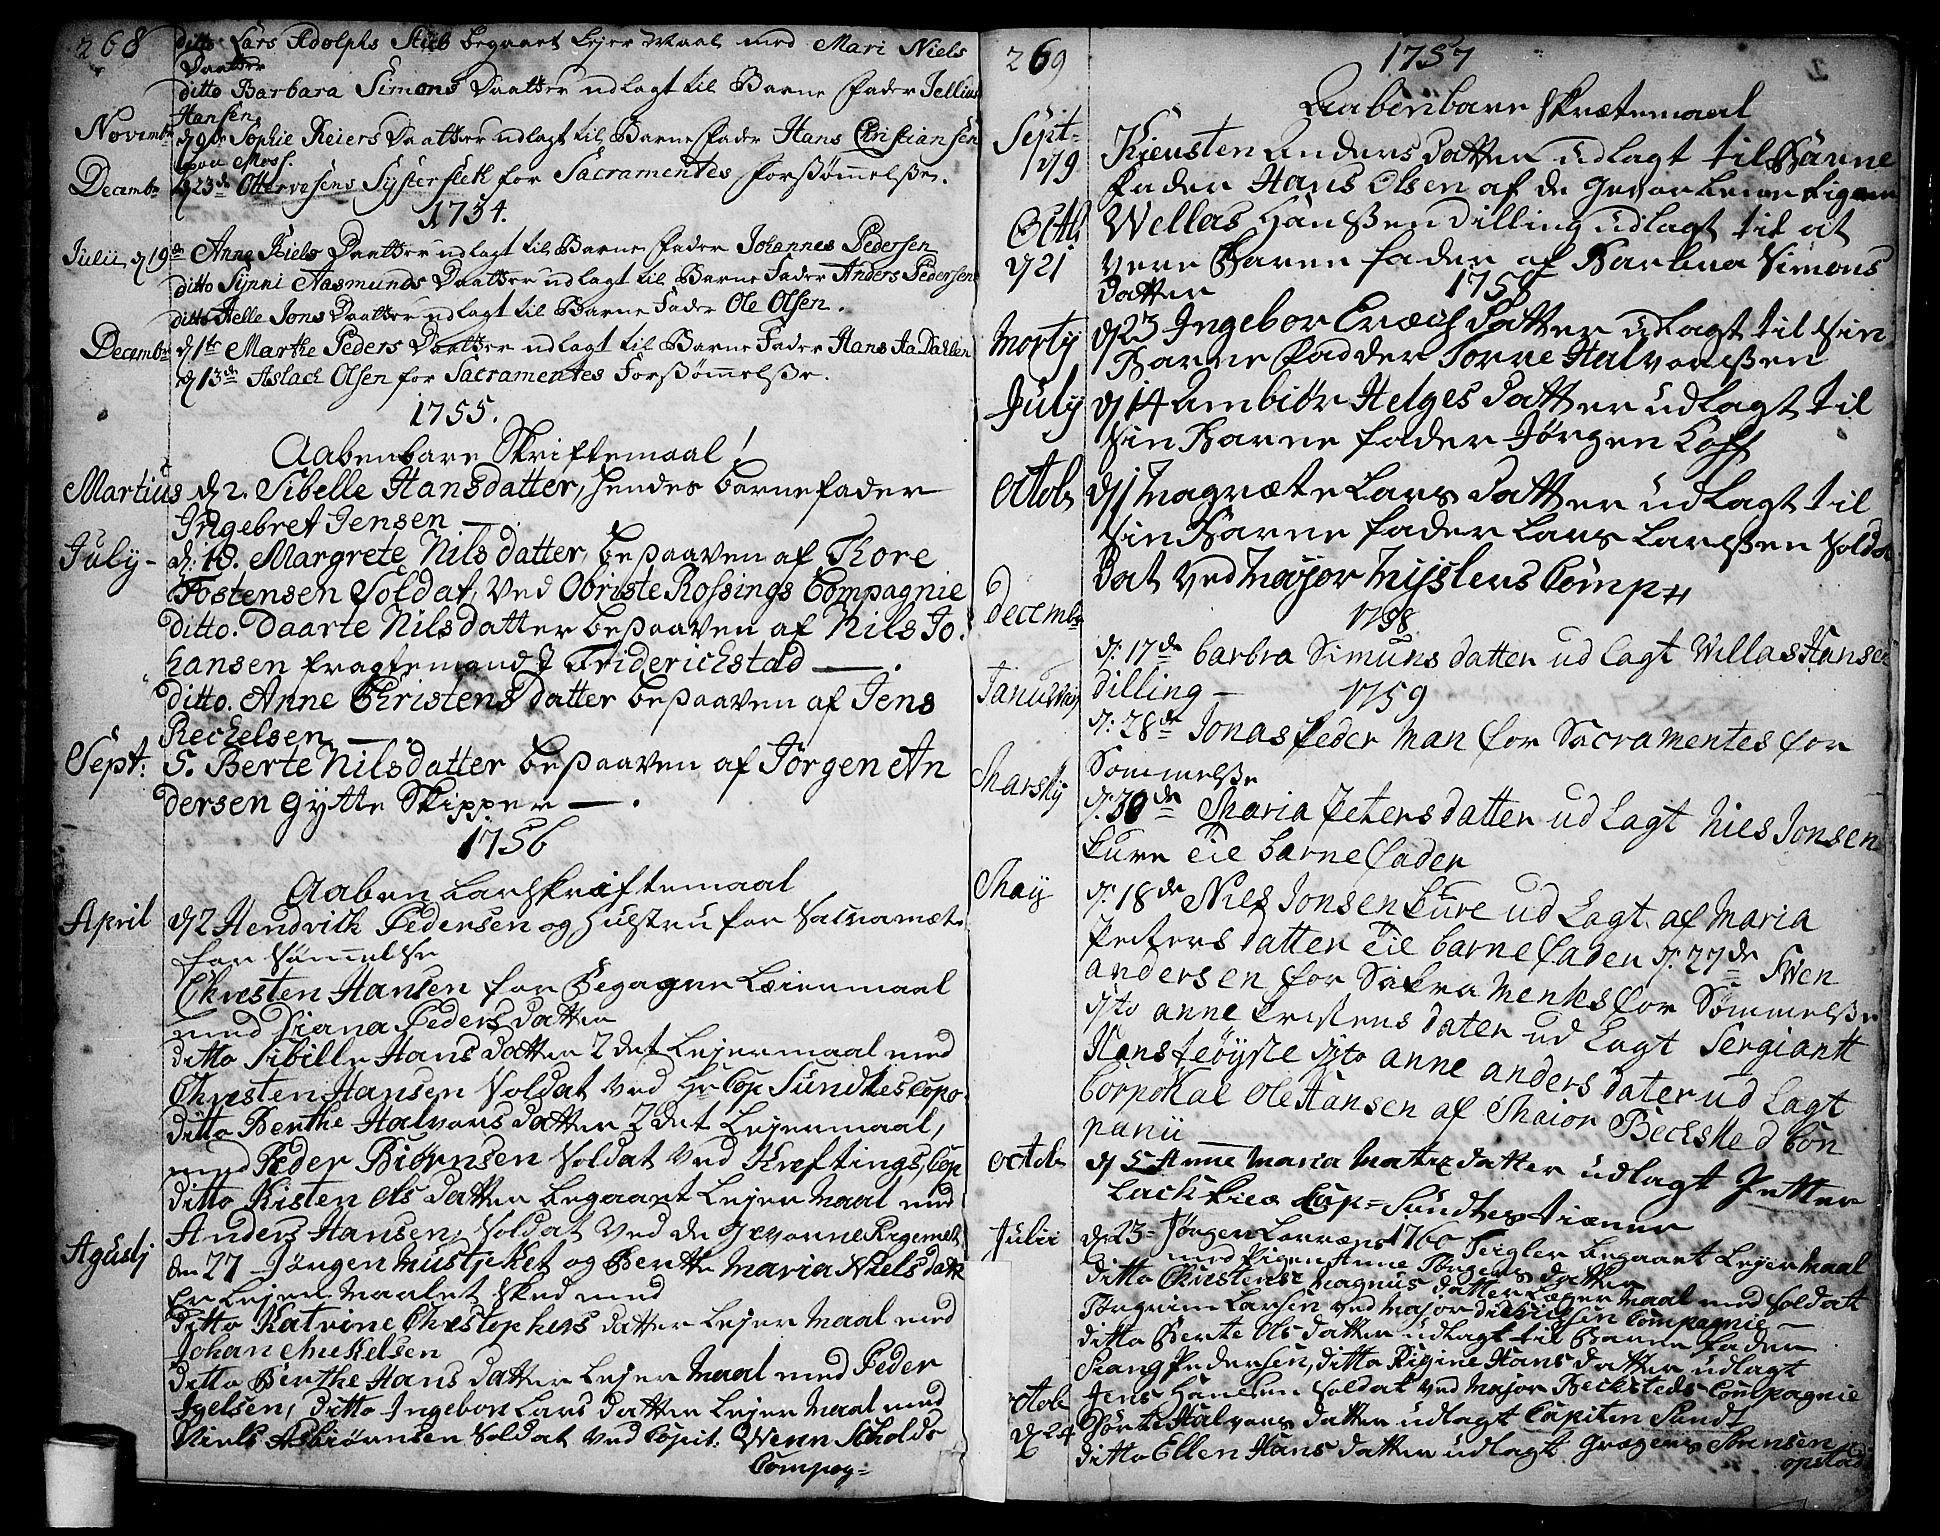 268
ditto Lars Adolphs Stub begaaet Lejer Maal med Mari Niels
Daatter
ditto Barbara Simons Daatter udlagt til Barne Fader Jellius
Hansen
Novembr d 9de Sophie Reiers Daatter udlagt til Barne Fader Hans Christiansen
paa Moss.
Decembr d 23de Ottervesens Systerslek for Sacramentes Forsømmelse.
1754.
Julii d 19de Anne Niels Daatter udlagt til Barne Fader Johannes Pedersen
ditto Synni Aasmunds Daatter udlagt til Barne Fader Anders Pedersen
ditto Helle Jons Daatter udlagt til Barne Fader Ole Olsen.
Decembr d 1te Marthe Peders Daatter udlagt til Barne Fader Hans Aa Dahlen
d 13de Aslack Olsen for Sacramentes Forsømmelse.
1755.
Aabenbare Skriftemaal!
Martius d 2. Sibelle Hansdatter, hendes barnefader
Ingebret Jensen —
July - d. 18. Margrete Nilsdatter, besaaven af Thore
Tostensen Soldat, ved Obriste Rossings Compagnie
ditto. Daarte Nilsdatter besaaven af Nils Jo-
hansen fragtemand J Friderichstad — .
ditto. Anne Christensdatter besaaven af Jens
Rechelsen — .
Sept: 5. Berte Nilsdatter besaaven af Jørgen An
dersen Gytte Skipper — .
1756
Aabenbar Skriftemaal
April d 2 Hendrich Pedersen og Hustru for Sacramæte
forsømmelse
Christen Hansen for Begagen Leiermaal
med Siana Pedersdatter
ditto Sibille Hansdatter 2det Lejermaal med
Christen Hansen Soldat ved Hr Cop Sundtes Copo
ditto Berthe Halvorsdatter 2det Lejermaal,
med Peder Biørnsen Soldat ved Kreftings, Cop
ditto Kisten Olsdatter begaaet Lejer Maal med
Anders Hansen, Soldat ved de Gevorne Rigemet
Agustj den 27 Jørgen Mustjeket og Berthe Maria Niels datt
er Lejer Maalet sked med
ditto Katrine Christophersdatter Lejer Maal med
Johan Mickelsen
ditto Berthe Hansdatter Lejer Maal med Peder
Iyelsen, ditto Ingebor Larsdatter Lejer Maal med
Niels Asbiørnsen Soldat ved Copit. Wenn Scholds
Compag=
269
1757
Aabenbare Skrætemaal
Sept- Kiersten Andersdatter udlagt til Barne
d 9 fader Hans Olsen af de Gevorbene Rigem
Octb Wellas Hanssen Dilling udlagt til at
d 21 vere Barne fader af Barbra Simons
datter
1758
Mortij d 23 Ingebor Erichsdatter udlagt til sin
Barne fadder Torre Halvorssen
July d 14 Ambiør Helgesdatter udlagt til
sin Barne fader Jørgen Loff
Octob d 1 Magræte Larsdatter udlagt til
sin Barne fader Lars Larssen Sold
dat ved Major Nijslers Comp
1758
Decembr d. 17de barbra Simunsdatter ud Lagt Willas Hansen
dilling —
1759
Januvary d: 28de Jonas Pederman for Sacramentes for
Sømmelsse
Marsty d. 30de Maria Petersdatter ud Lagt Niels Jonsen
Lure Til barnefader
May d. 18de Niels Jonsen Lure ud Lagt af Maria
Petersdatter Til barnefader d. 27de Swen
andersen for Sakramentes for Sømmelsse
dito anne Cristensdater ud Lagt Sergiantt
Hans Løyste dito anne andersdater ud Lagt
Corpokal Ole Hansen af Maior Beckste d Con
panii —
Octob d 5 Anne Maria Matiz datter udlagt Petter
Lack Cap= Sundtes tienner
1760
Julii d 23= Jørgen Lorræns Teigler begaaet Lejer Maal
med Pigen Anne Jørgensdatter
ditto Christense Magnusdatter Leger Maal med Soldat
Torgrim Larsen ved Major Didrichsen Compagnie —
ditto Berte Olsdatter udlagt til Barne fader
Siang Pedersen, ditto Rigine Hansdatter udlagt
Jens Hansen Soldat ved Major Becksteds Compagnie
Octob Dorte Halvorsdatter udlagt Capiten Sundt
d 24 ditto Ellen Hansdatter udlagt Gregers Sørensen
opstad